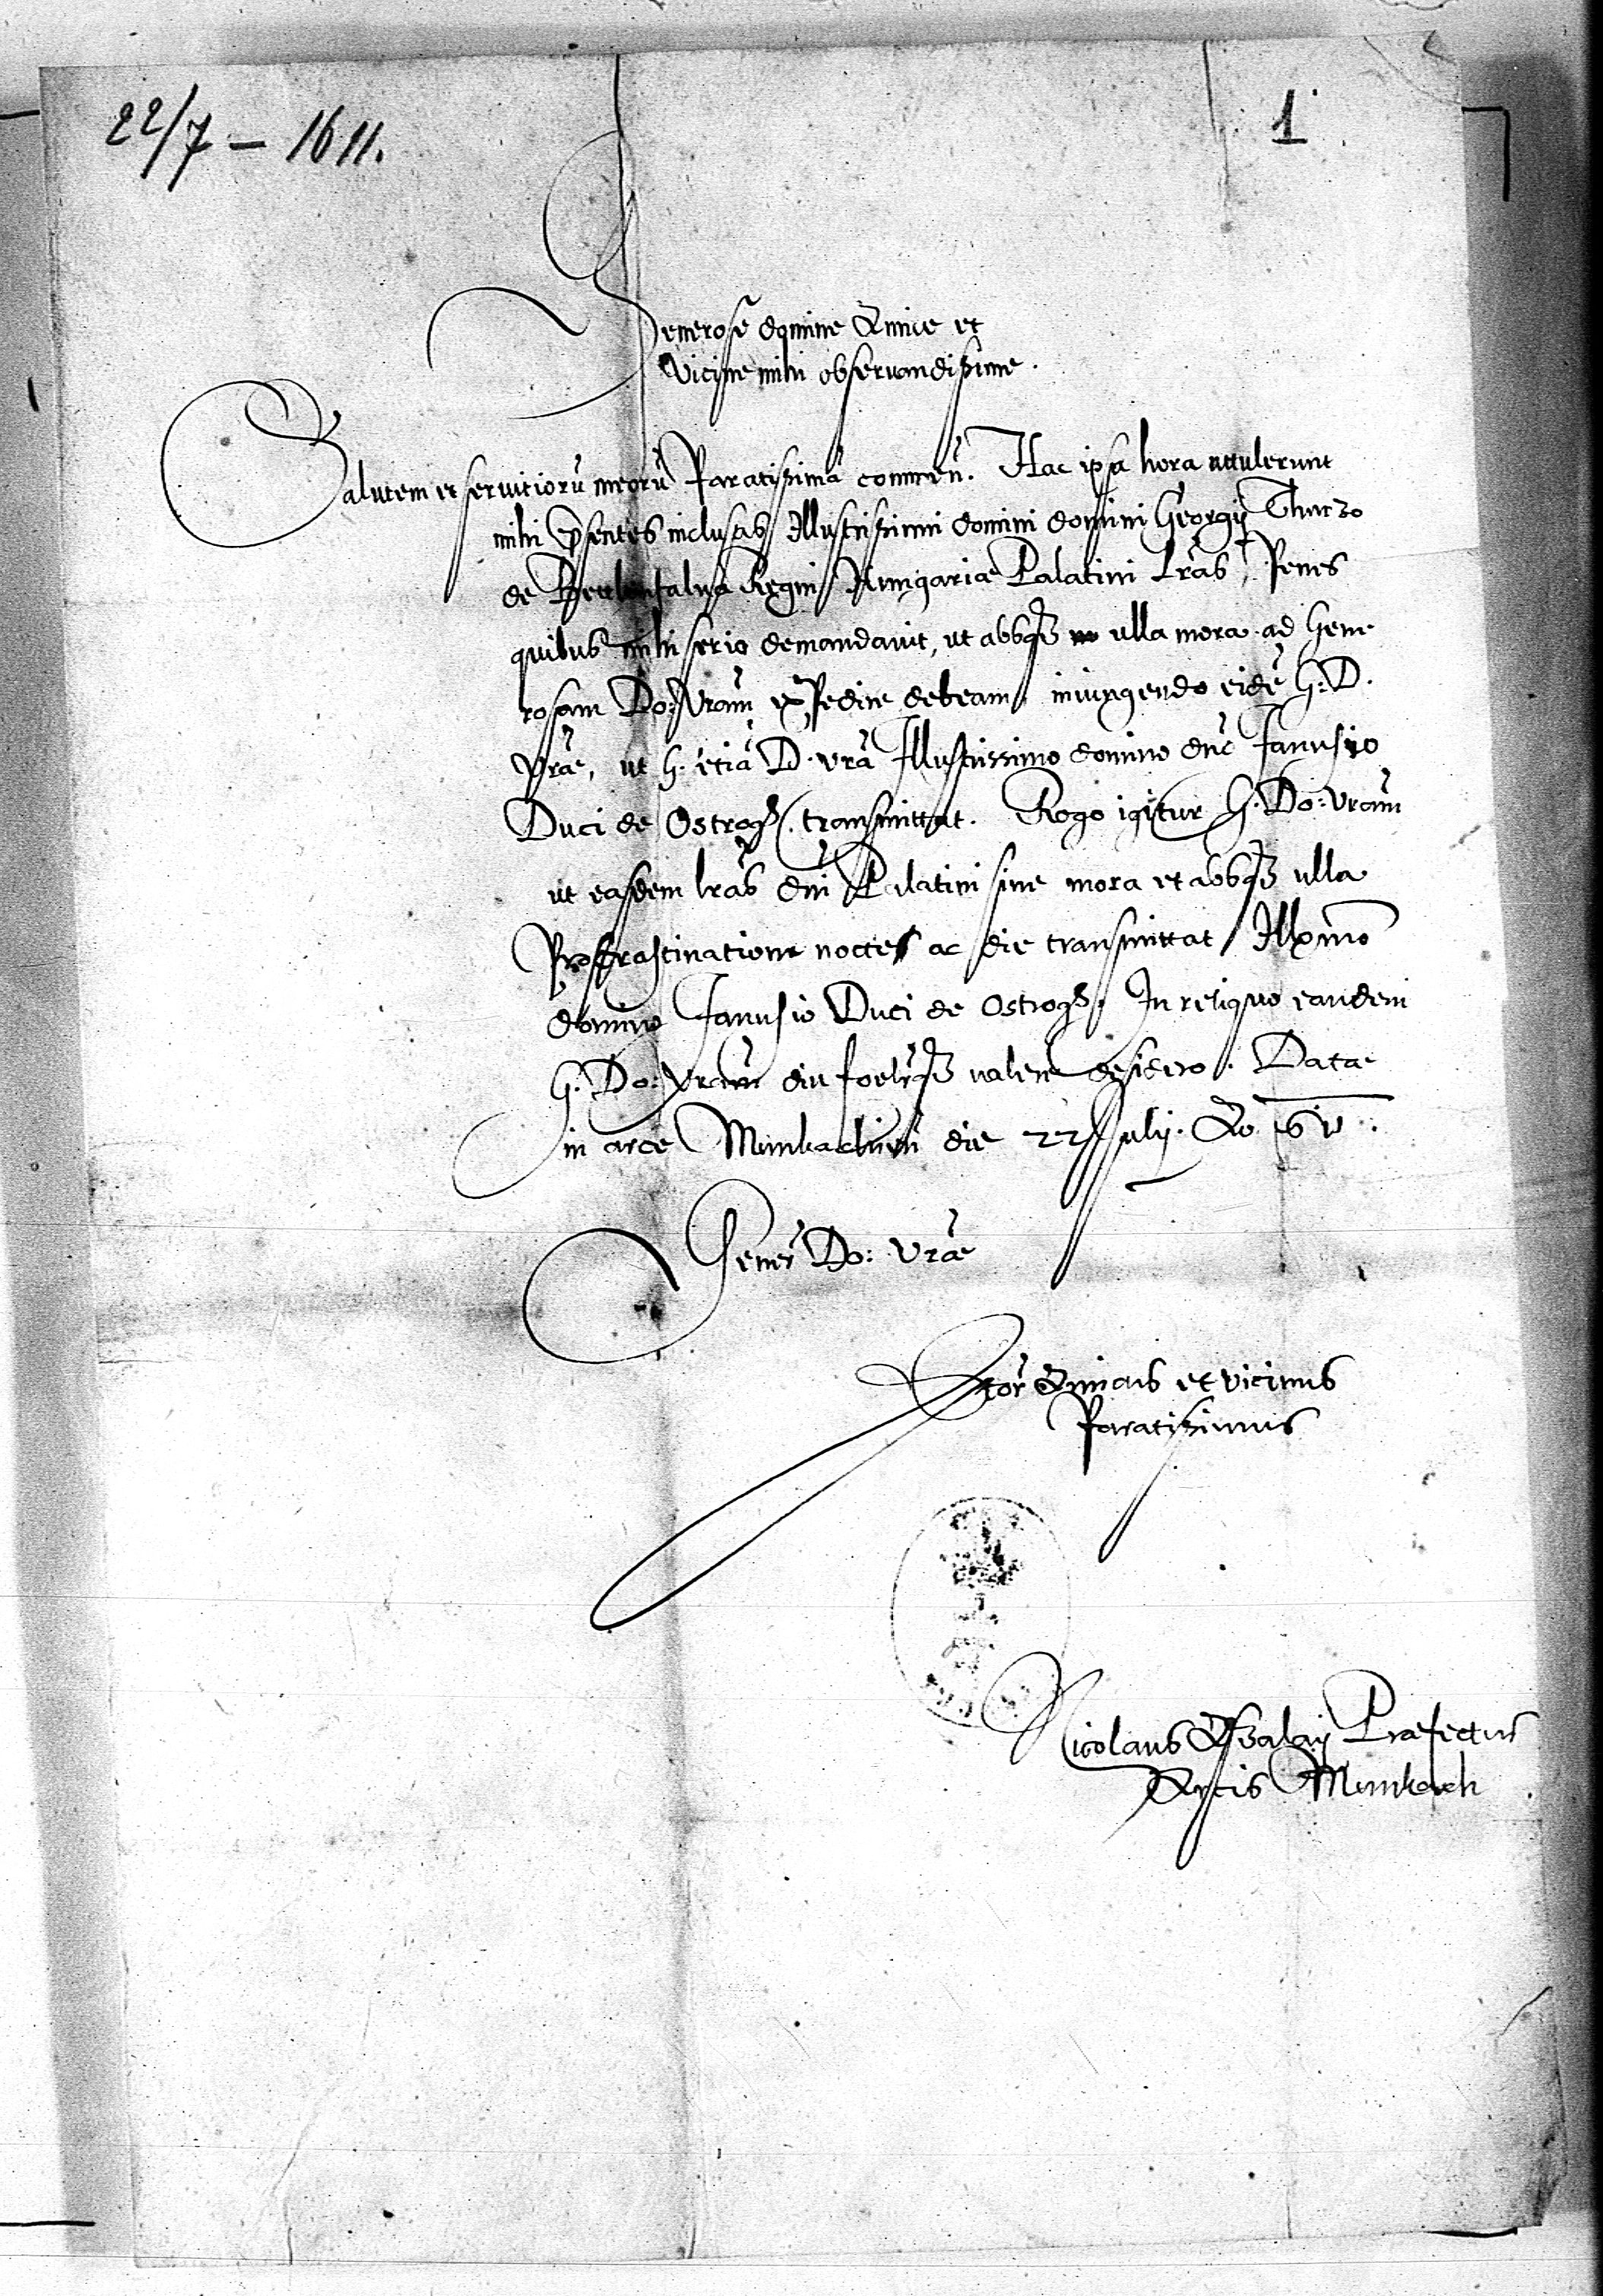 22/7 – 1611.
1
Generose domine Amice et
Vicine mihi obseruandissime.
Salutem et seruitiorū meorū Paratissimā commen. Hac ipsa hora attulerunt
mihi p̄sentes inclusas Illustrissimi domini domini Georgij Thurzo
de Bethlenfalua Regni Hungariae Palatini Lrās, Penes
quibus mihi serio demandauit, ut absq3 ulla mora ad Gene
rosam Do: Vrām expedire debeam, iniungendo eidē G: D.
Vrāe, ut G. etiā D. vrā Illustrissimo domino dnō Janusio
Duci de Ostrog. transmittat. Rogo igitur G. Do: Vrām
ut easdem lrās dnī Palatini sine mora et absq3 ulla
Procrastinatione noctes ac die transmittat Illmō
domino Janusio Duci de Ostrog. In reliquo eandem
G. Do: Vrām diu foelirq3 valere desidero. Datae
in arce Munkach die 22 July. Ao 611.
Gener Do: Vrāe
Amicus et vicinus
Paratissimus
Nicolaus Praefectus
Arcis Munkach